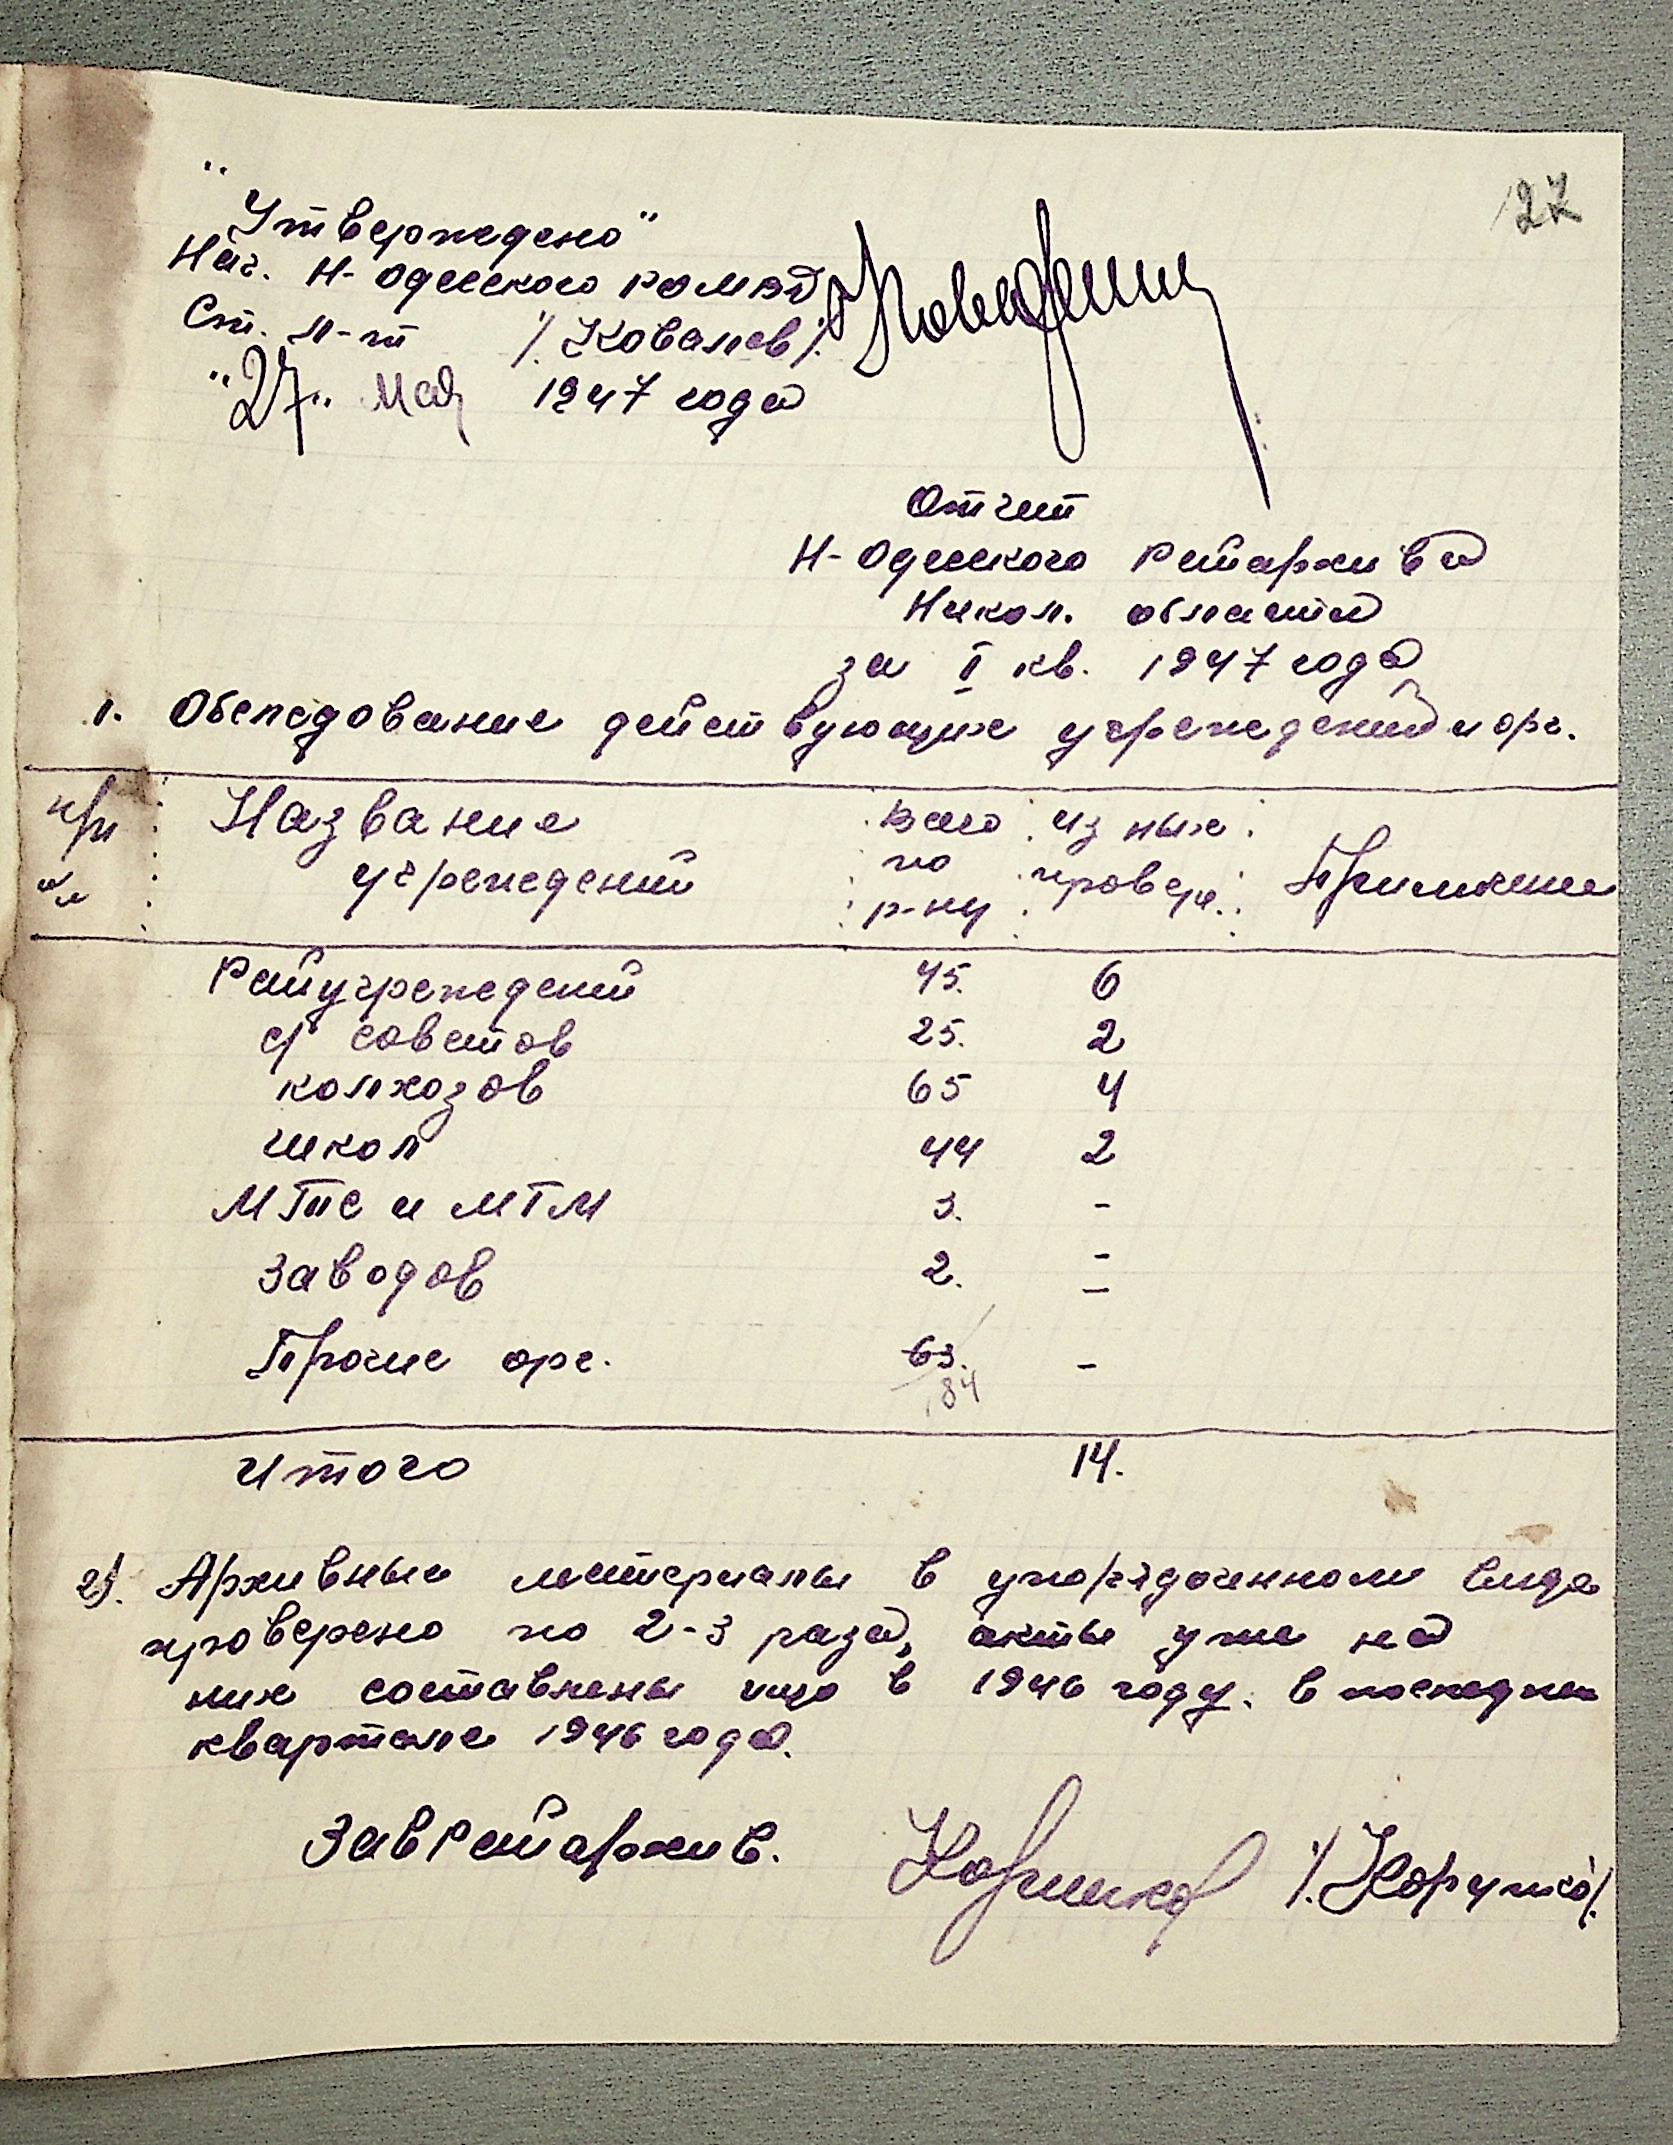 27
"Утверждено"
Нач. Н-Одесского РОМВД
Ст. л-т /. Ковалев/.
"27" мая 1947 года
Отчет
Н-Одесского Райархива
Никол. области
за I кв. 1947 года
1. Обследование действующих учреждений и орг.
Название всего из них
учреждений по провер. Примечание
р-ну
Райучреждений 45. 6
с/советов 25. 2
колхозов 65 4
школ 44 2
МТС и МТМ 3. -
Заводов 2. -
Прочие орг. 63. -
84
Итого 14.
2). Архивные материалы в упорядоченном виде
проверено по 2-3 раза, акты уже на
них составлены еще в 1946 году. В последнем
квартале 1946 года.
ЗавРайархив. /.Корунко/.